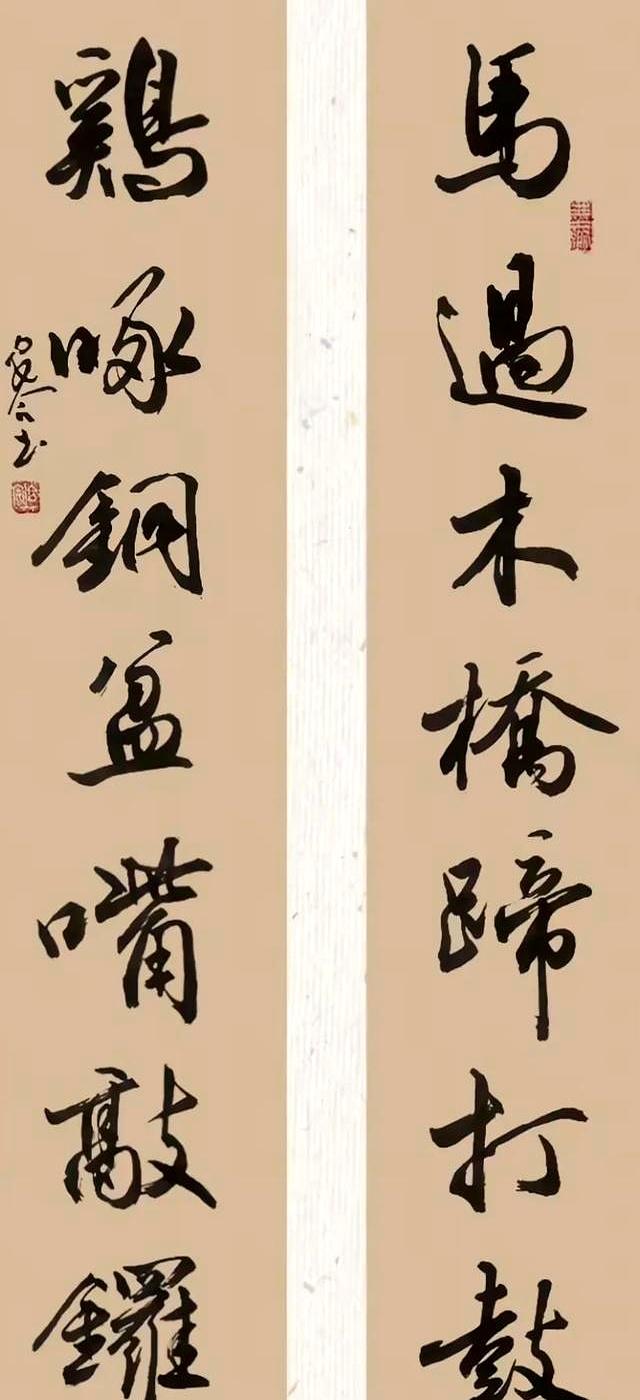 馬過木橋蹄打鼓
鷄啄銅盆嘴敲鑼